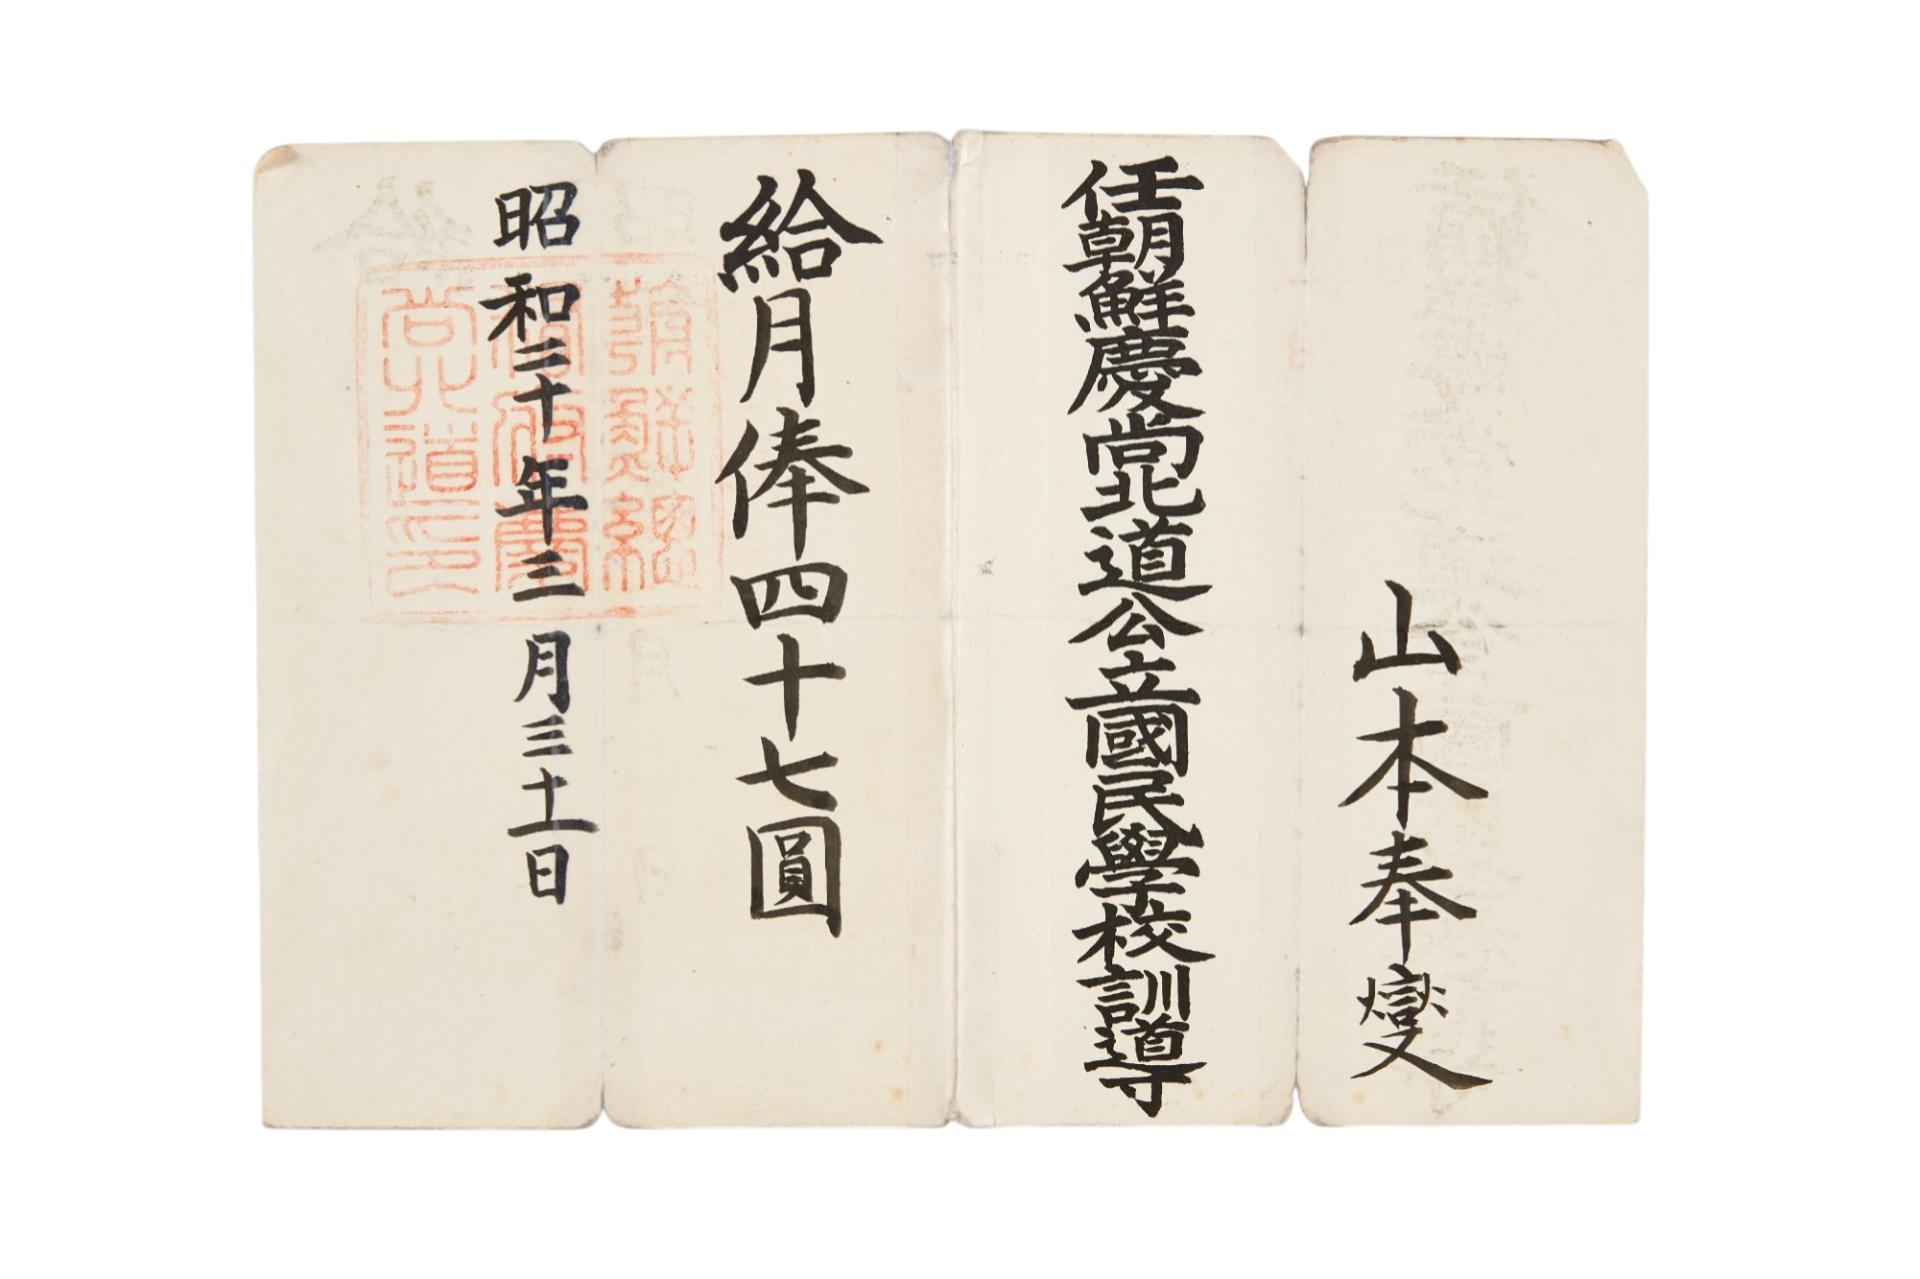 山本奉燮
任朝鮮慶尚北道公立國民學校訓導
給月俸四十七圓
昭和二十年三月三十一日
朝鮮總
督府慶
尚北道印